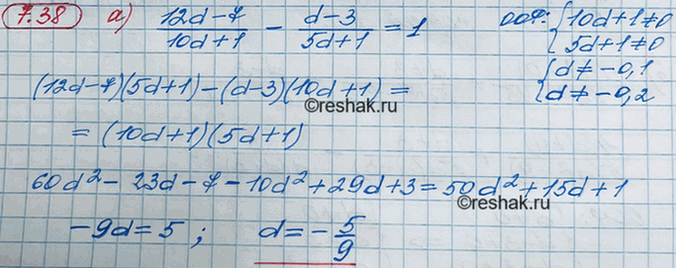 7.38 а) (12d-7)/(10d+1) - (d-3)/(5d+1) = 1 ООУ: { 10d+1≠0
5d+1≠0
{ d≠-0,1
d≠-0,2
(12d-7)(5d+1)-(d-3)(10d+1)=
©reshak.ru
=(10d+1)(5d+1)
60d²-23d-7-10d²+29d+3=50d²+15d+1
©reshak.ru
-9d=5; d=-5/9